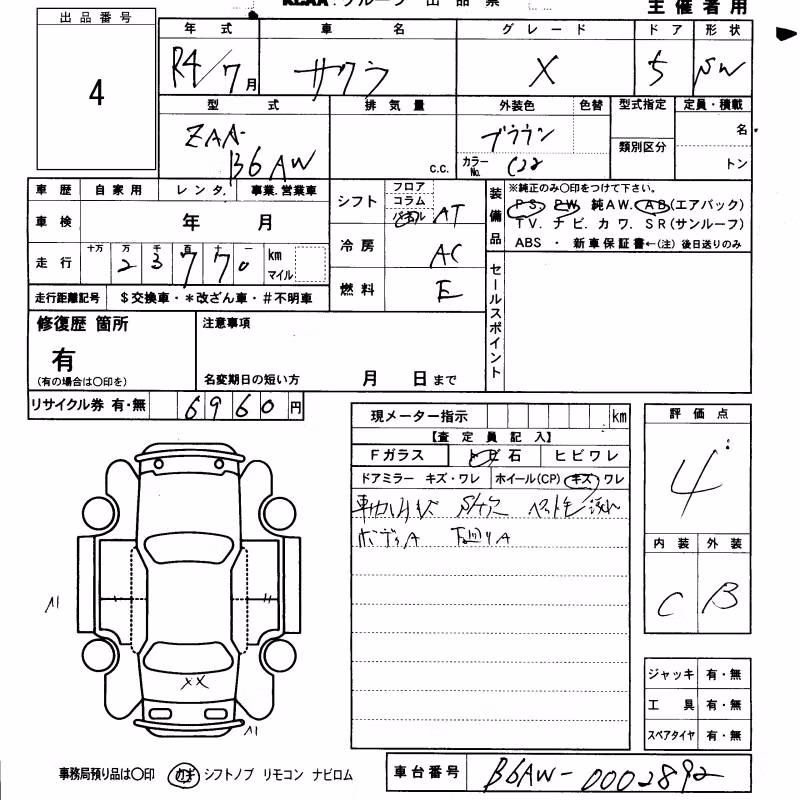 KCAA・グループ 出品票
主催者用
出品番号
4
年式 車名 グレード ドア 形状
R4/7月 サクラ X 5 SW
型式 排気量 外装色 色替 型式指定 定員・積載
ZAA-
B6AW
c.c.
ブラウン
カラーNo. C22
類別区分
名
トン
車歴 自家用 レンタ. 事業.営業車
車検 年 月
走行 十万 万 千 百 十 一 km マイル
2 3 7 7 0
走行距離記号 $交換車・*改ざん車・#不明車
シフト フロア コラム パネル AT
冷房 AC
燃料 E
装備品
※純正のみ〇印をつけて下さい。
PS PW 純AW. AB(エアバック)
TV. ナビ. カワ. SR(サンルーフ)
ABS ・ 新車保証書←(注) 後日送りのみ
セールスポイント
修復歴 箇所
有
(有の場合は〇印を)
注意事項
名変期日の短い方 月 日まで
リサイクル券 有・無 6960円
現メーター指示 km
【査定員記入】
Fガラス トビ石 ヒビワレ
ドアミラー キズ・ワレ ホイール(CP) キズ・ワレ
ボディA 下廻りA
評価点
4
内装 外装
C B
A1
XX
A1
ジャッキ 有・無
工具 有・無
スペアタイヤ 有・無
事務局預り品は〇印 カギ シフトノブ リモコン ナビロム
車台番号 B6AW-0002892